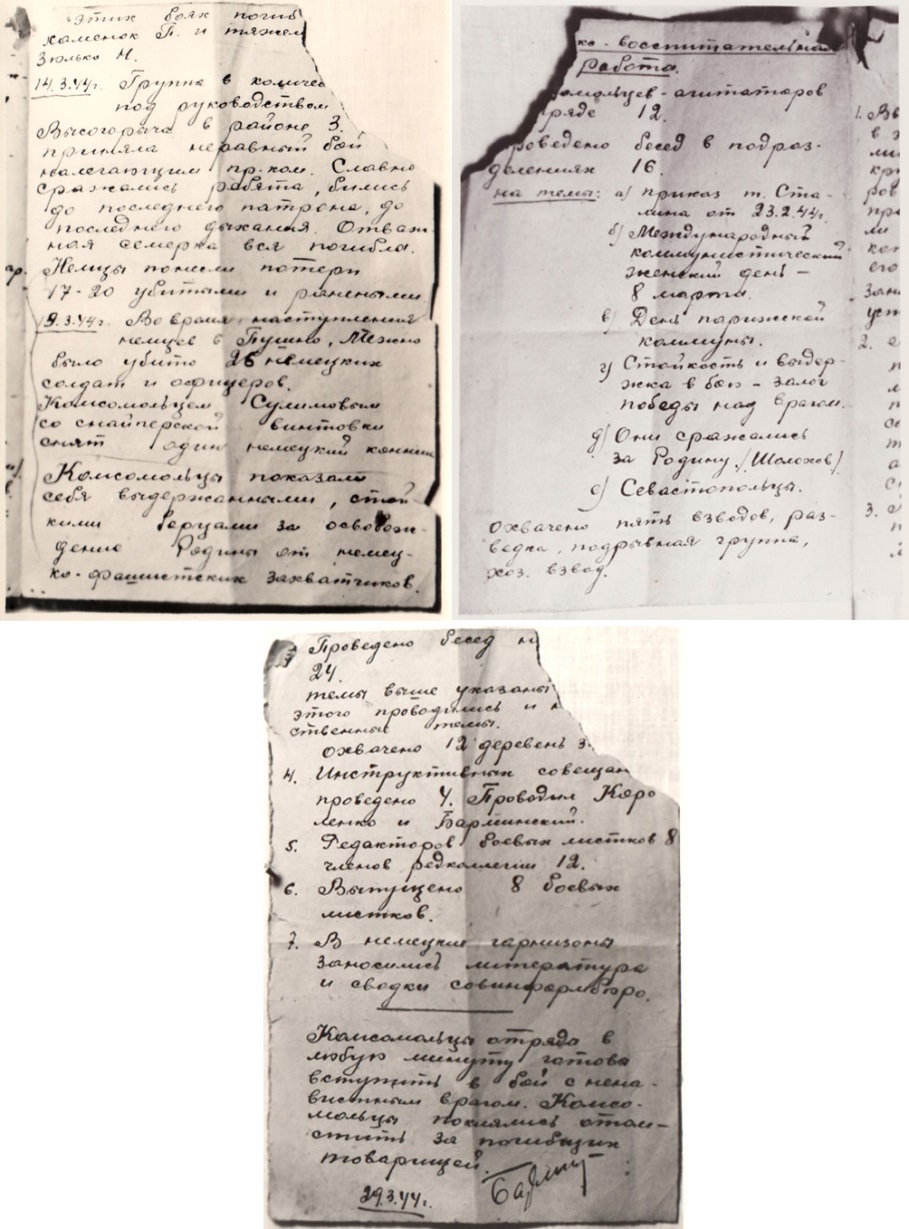 этих боях погиб
хаменок П. и тяжел
Зюлько Н.
14.3.44г. Группа в количес
под руководством
Высогорыча в районе З.
приняла неравный бой
налегающим пр-ком. Славно
сражались ребята, бились
до последнего патрона, до
последнего дыхания. Отваж-
ная семерка вся погибла.
Немцы понесли потери
17-20 убитыми и ранеными
19.3.44г. Во время наступления
немцев в Пушно, Межно
было убито 26 немецких
солдат и офицеров.
Комсомольцем Сулимовым
со снайперской винтовки
снят один немецкий конни
Комсомольцы показали
себя выдержанными, стой-
кими борцами за освобож-
дение Родины от немец-
ко-фашистских захватчиков.
ко-воспитательная
работа.
омольцев-агитаторов
ряде 12.
роведено бесед в подраз-
делениях 16.
на темы: а) приказ т. Ста-
лина от 23.2.44г.
б) Международный
коммунистический
женский день –
8 марта.
в) День парижской
коммуны.
г) Стойкость и выдер-
жка в бою – залог
победы над врагом.
д) Они сражались
за Родину /Шолохов/
е) Севастопольцы.
охвачено пять взводов, раз-
ведка, подрывная группа,
хоз. взвод.
1. Вы
2.
3.
Проведено бесед н
24.
темы выше указаны
этого проводились и
ственные темы.
охвачено 12 деревень з.
4. Инструктивных совещан
проведено 4. Проводил Каро
ленко и Барминский.
5. Редакторов боевых листков 8
членов редколлегии 12.
6. Выпущено 8 боевых
листков.
7. В немецкие гарнизоны
заносились литература
и сводки совинформбюро.
Комсомольцы отряда в
любую минуту готова
вступить в бой с нена-
вистным врагом. Комсо-
мольцы поклялись отом-
стить за погибших
товарищей.
29.3.44г.